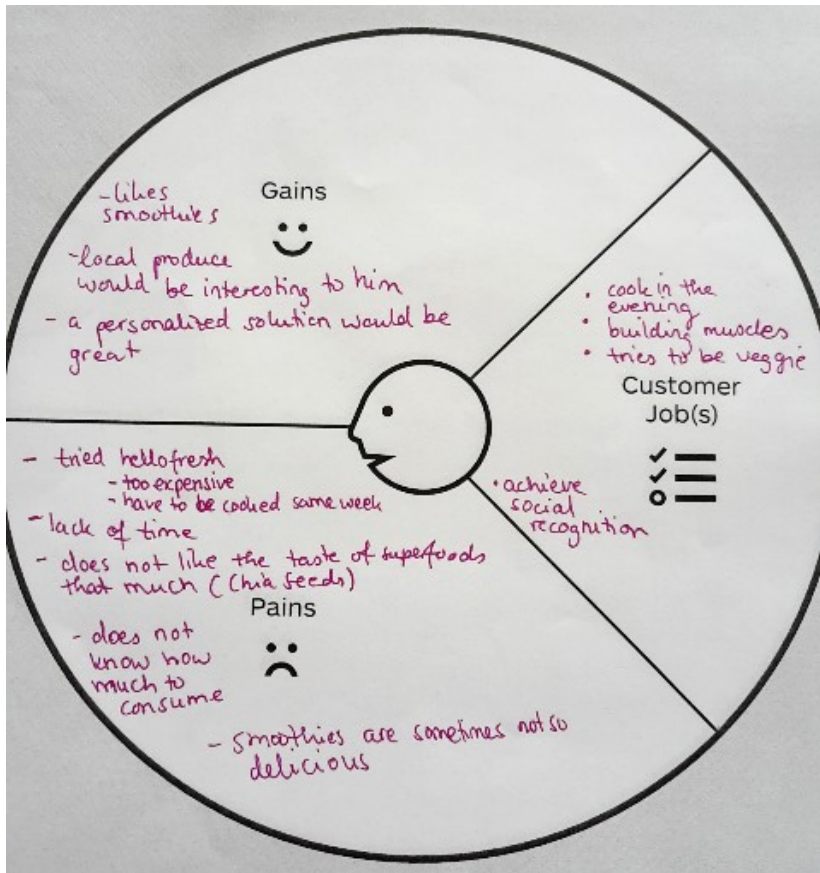 Gains
-likes
smoothies
-local produce
would be interesting to him
- a personalized solution would be
great
• cook in the
evening
• building muscles
• tries to be veggie
Customer
Job(s)
• achieve
social
recognition
- tried hellofresh
- too expensive
- have to be cooked same week
- lack of time
- does not like the taste of superfoods
that much (Chia seeds)
Pains
- does not
know how
much to
consume
- smoothies are sometimes not so
delicious